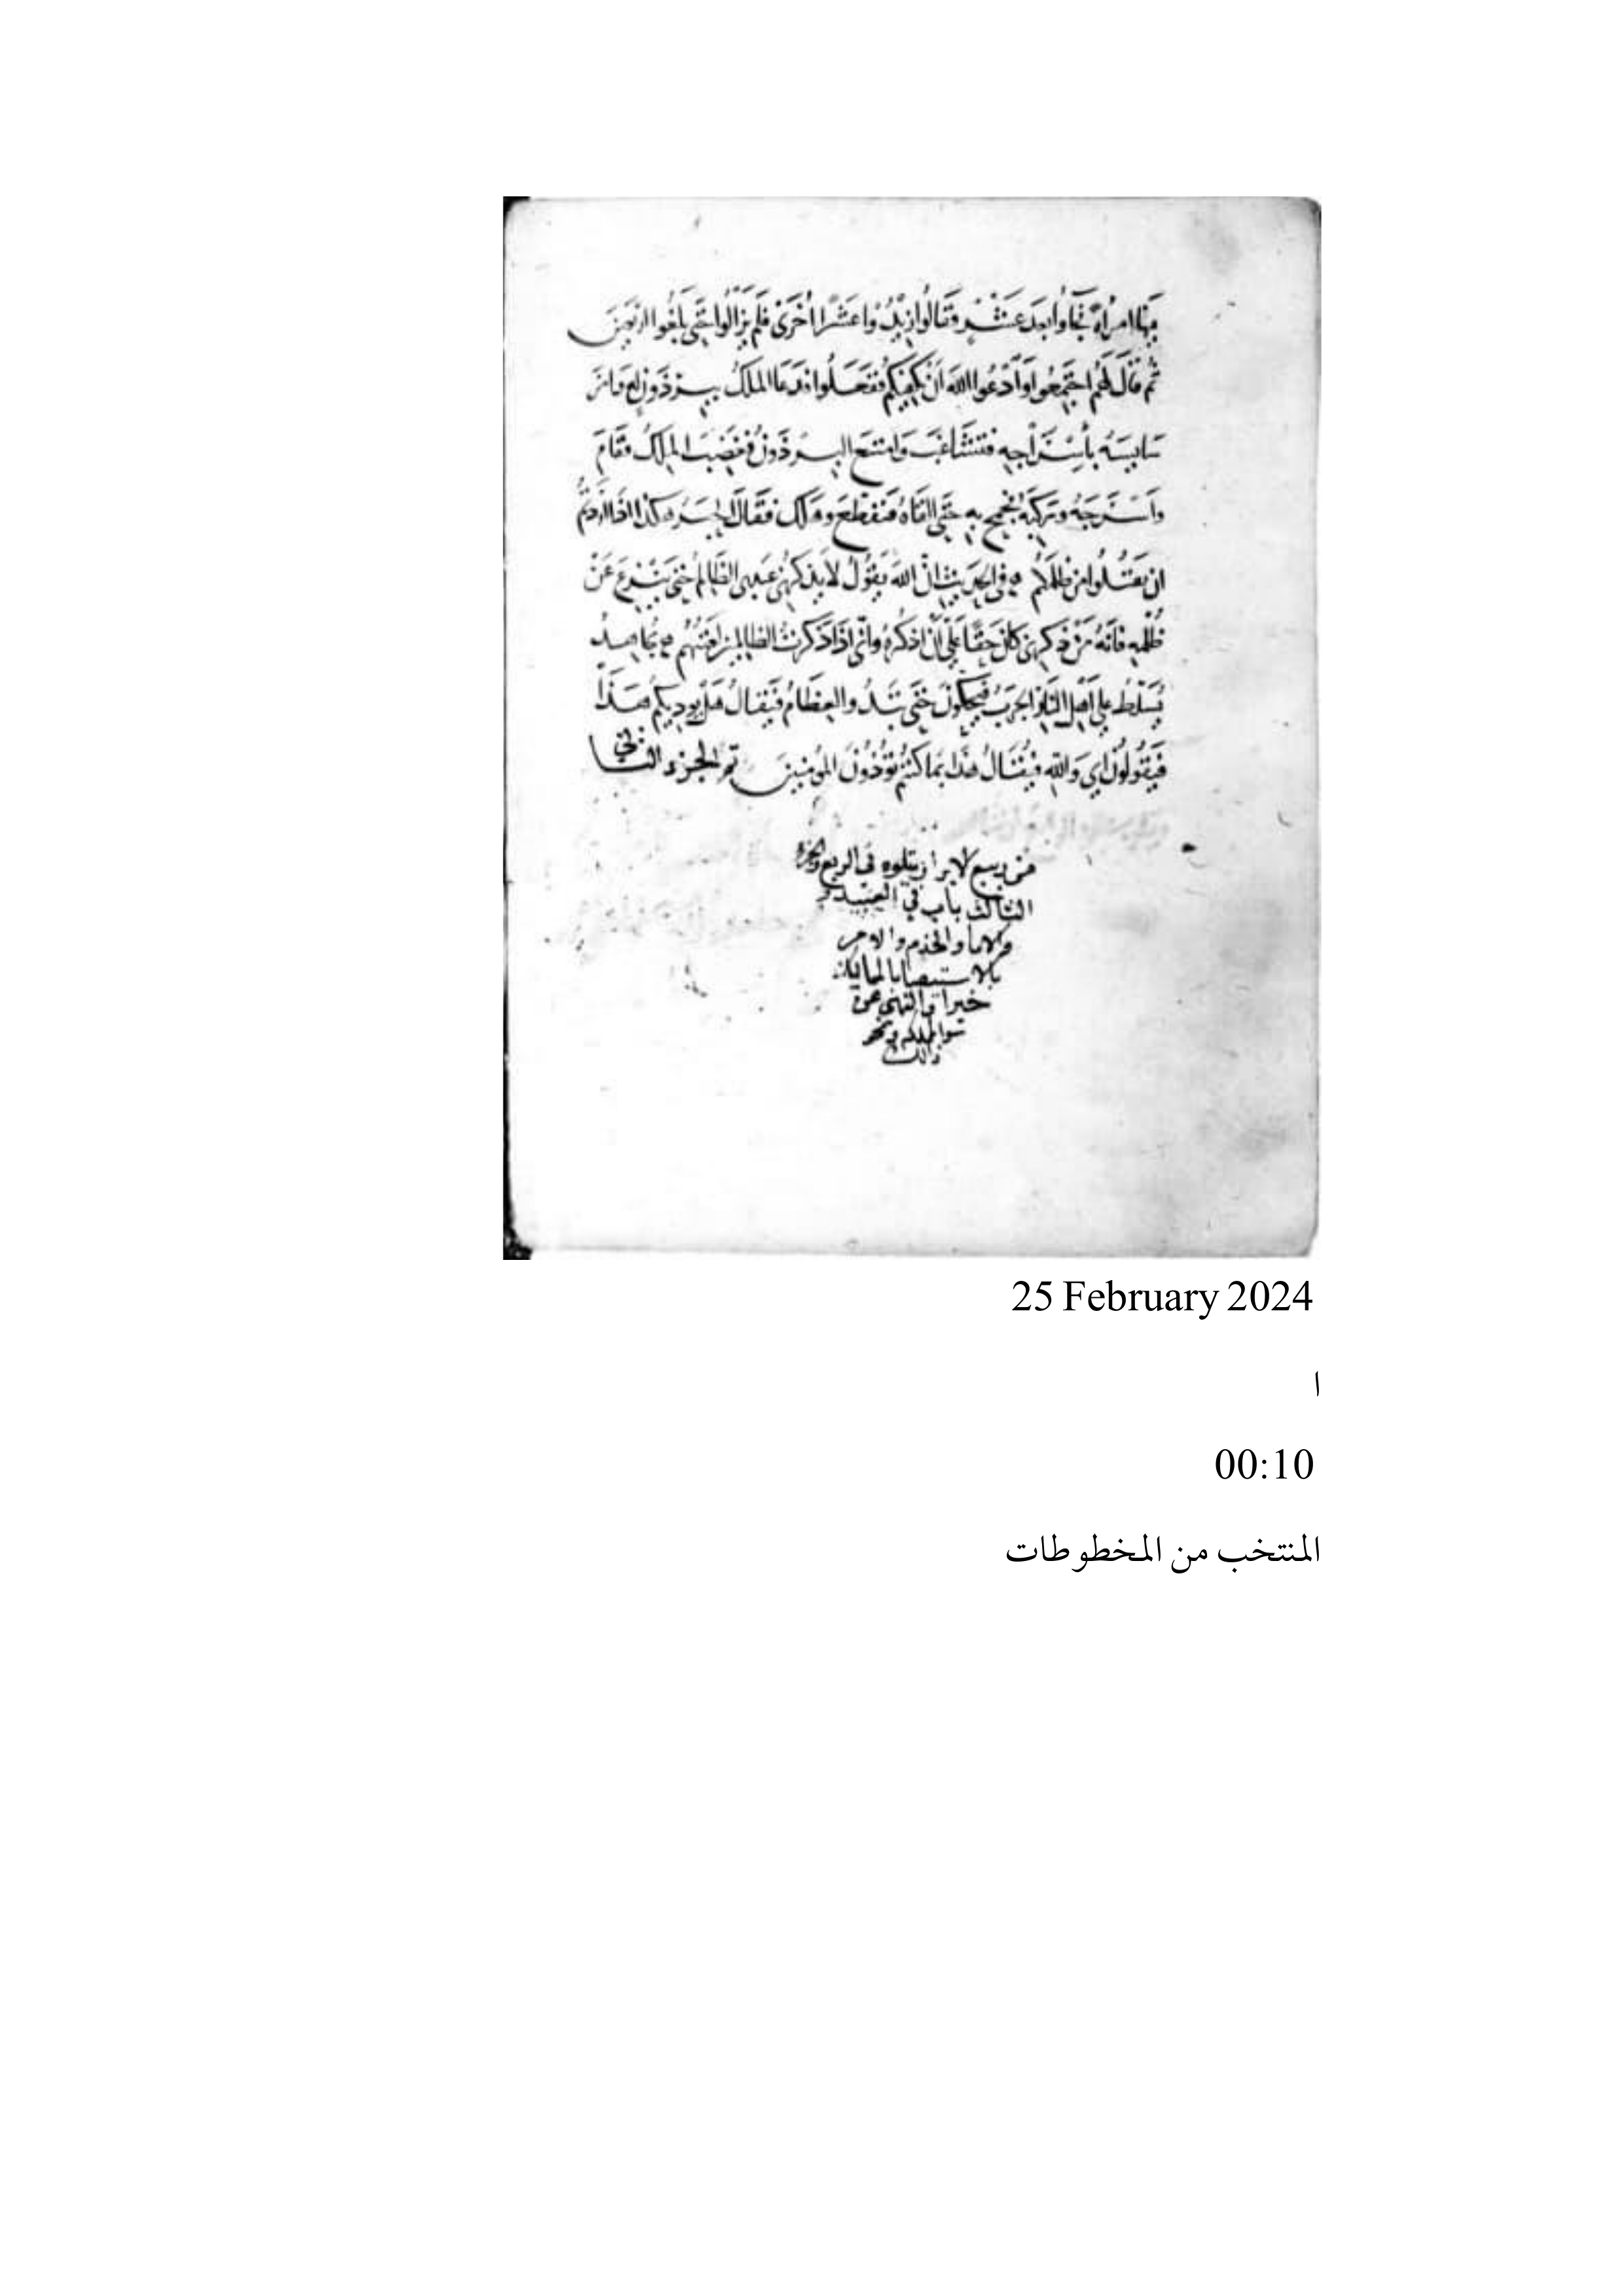 منها امرأة فجاؤا بعد عشر وقالوا زيدوا عشرا أخرى فلم يزالوا حتى بلغوا اربعين
ثم قال لهم اجتمعوا وادعوا الله أن يكفيكم ففعلوا فدعا الملك ببرذون له وامر
سايسه بأسراجه فتشاغب وامتنع البرذون فغضب الملك فقام
واسرجه وركبه فجمح به حتى القاه فتقطع وهلك فقال الحبر هكذا اذا اردتم
ان يقتلوا من ظلمكم ه في الحديث ان الله يقول لا يذكرني عبدي الظالم حتى ينزع عن
ظلمه فانه من ذكرني كان حقا علي أن اذكره واني اذا ذكرت الظالمين لعنتهم ه مجاهد
يسلط على اهل النار الجرب فيحكون حتى تبدو العظام فيقال هل يوذيكم هذا
فيقولون اي والله فيقال هذا بما كنتم تؤذون المؤمنين تم الجزء الثاني
من ربيع الابرار يتلوه في الربع والجزء
الثالث باب في العبيد
والاما والخدم والامر
بالاستيصا بالمماليك
خيرا والنهي عن
سو الملكه ونحو
ذالك
25 February 2024
ا
00:10
المنتخب من المخطوطات